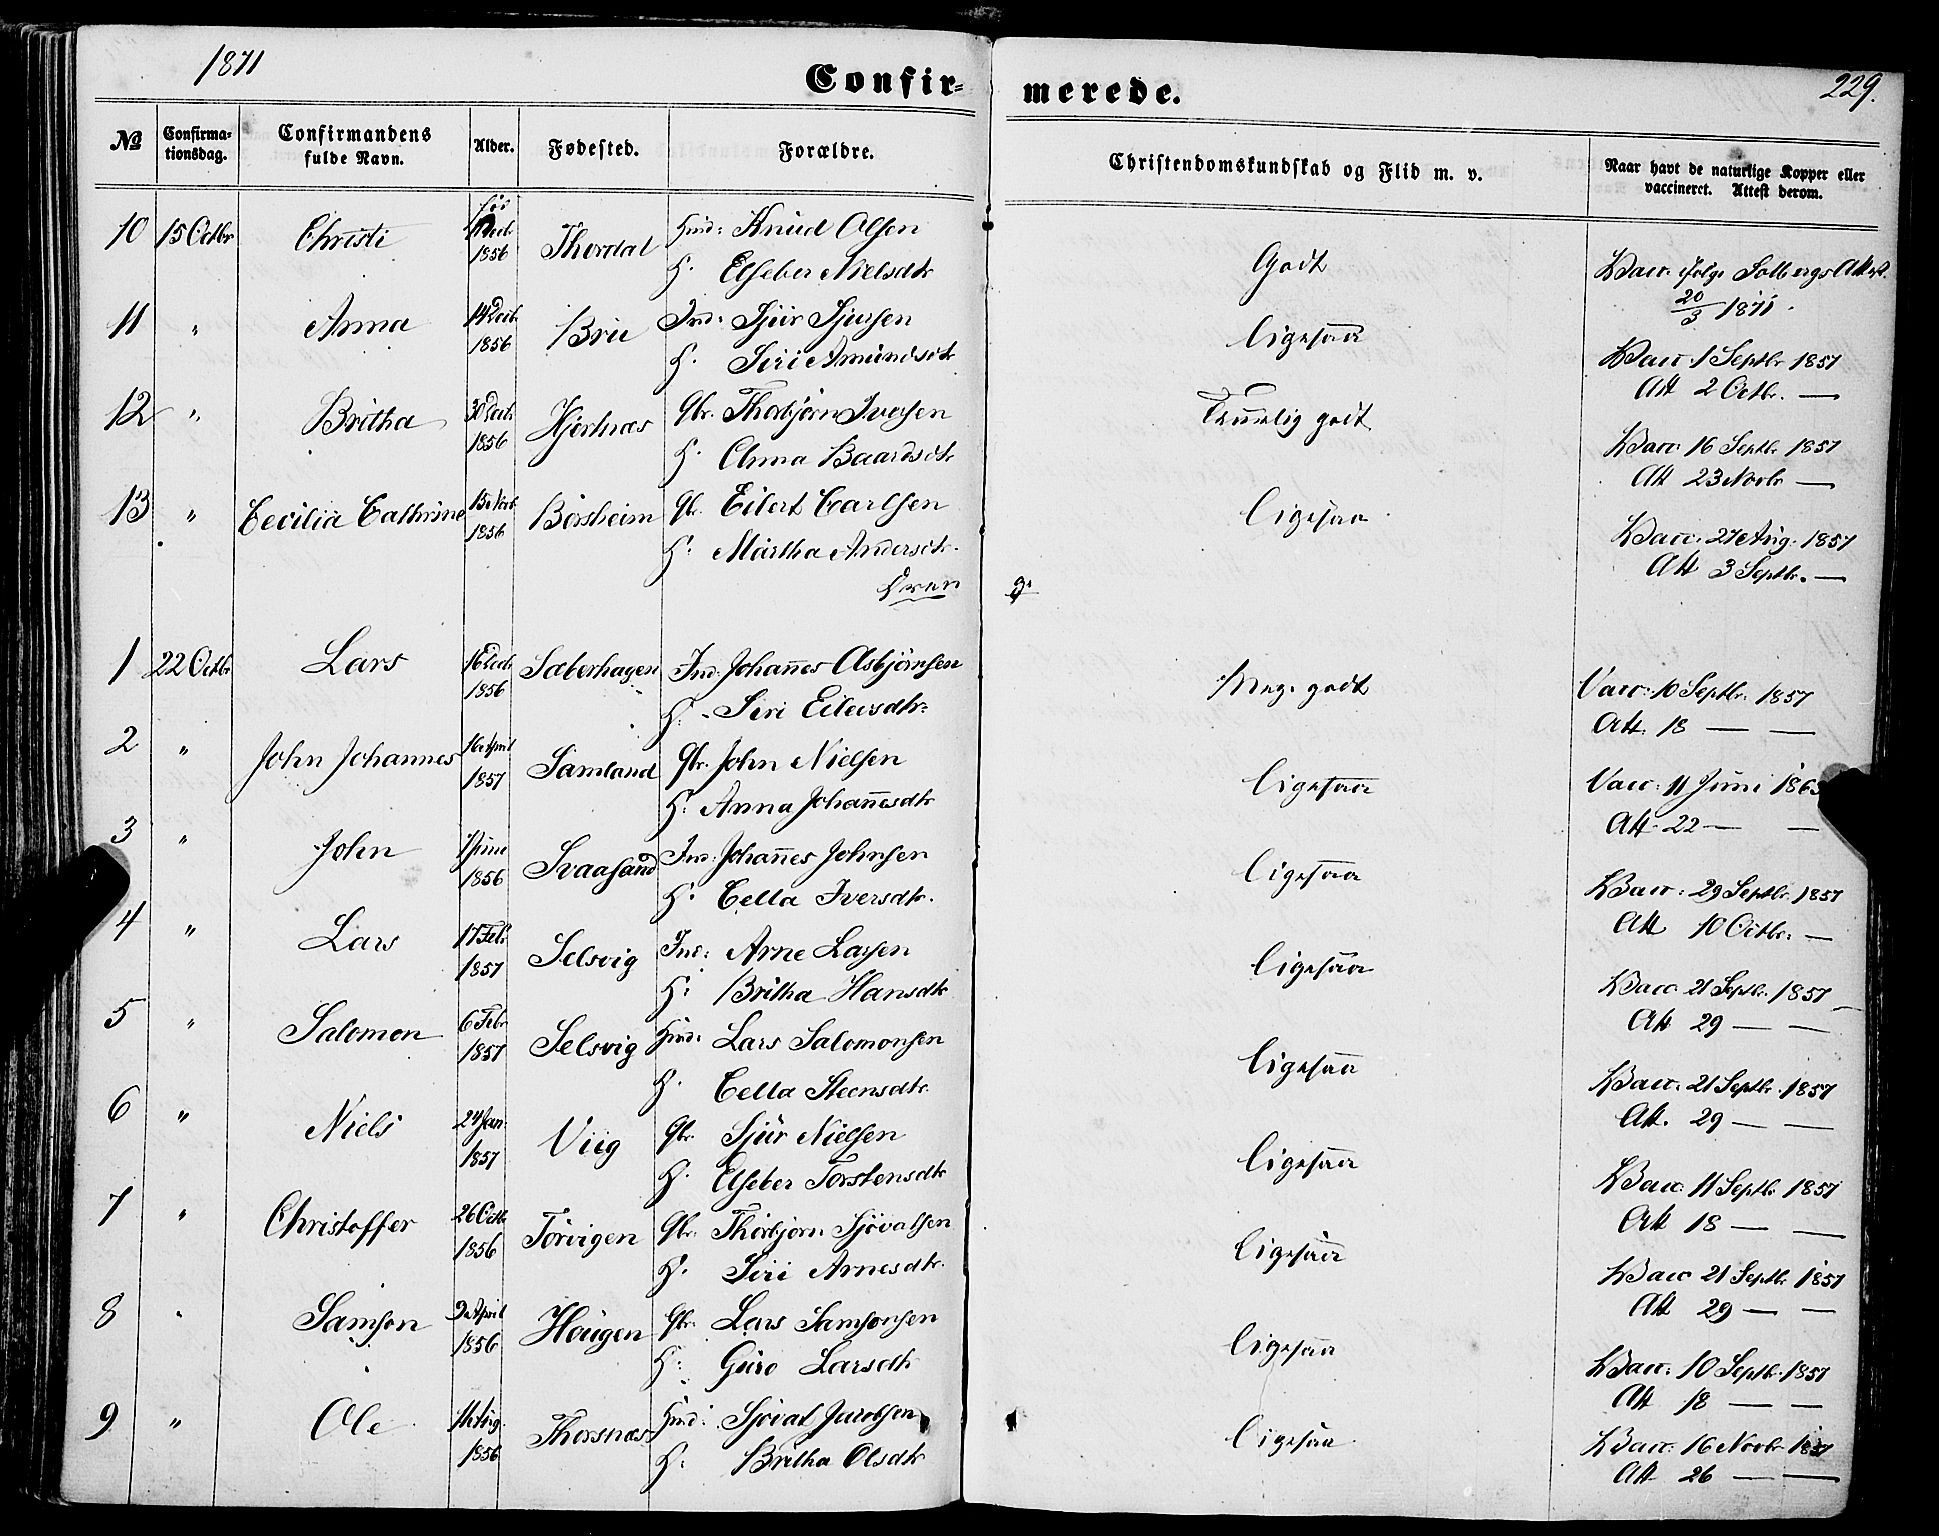 1871
Confir-
merede.
229.
No
Confirma-
tionsdag.
Confirmandens
fulde Navn.
Alder.
Fødested.
Forældre.
Christendomskundskab og Flid m. v.
Naar havt de naturlige Kopper eller
vaccineret. Attest derom.
10 15 Octbr Christi 1856 Thordal Huusm: Knud Olsen Godt Vacc. ifølge Solbergs Attest.
H. Elseber Nielsdtr 20/3 1871.
11 " Anna 14 Decb. 1856 Brue Ind: Sjur Sjursen Ligesaa Vacc. 1 Septbr 1857
H. Siri Amundsdtr Att 2 Octbr. —
12 " Britha 30 Decb. 1856 Hjertnæs Gbr. Thorbjørn Iversen Temmelig godt Vacc. 16 Septbr 1857
H. Anna Baardsdtr Att 23 Novbr —
13 " Cecilia Cathrine 15 Novb 1856 Børsheim Gbr. Eilert Carlsen Ligesaa Vacc. 27 Aug. 1857
H: Martha Andersdtr. Att 3 Septbr. —
1 22 Octbr Lars 16 Decb. 1856 Sæberhagen Ind. Johannes Asbjørnsen Meg. godt Vacc: 10 Septbr. 1857
H: Siri Eilersdtr: Att. 18 — —
2 " John Johannes 16 April 1857 Samland Gbr. John Nielsen Ligesaa Vacc: 11 Juni
H: Anna Johannesdtr Att. 22 — —
3 " John 1 Juni 1856 Svaasand Ind. Johannes Johnsen Ligesaa Vacc: 29 Septbr. 1857
H. Cella Iversdtr. Att 10 Octbr: —
4 " Lars 17 Febr 1857 Selsvig Ind: Arne Larsen Ligesaa Vacc 21 Septbr. 1857
H: Britha Hansdtr Att 29 — —
5 " Salomon 6 Febr 1857 Selsvig Huusm: Lars Salomonsen Ligesaa Vacc: 21 Septbr. 1857
H. Cella Steensdtr. Att. 29 — —
6 " Niels 24 Jan. 1857 Viig Gbr. Sjur Nielsen Ligesaa Vacc: 11 Septbr 1857
H. Elseber Torstensdtr Att 18 — —
7 " Christoffer 26 Octb. 1856 Torvigen Gbr. Thorbjørn Sjovatsen Ligesaa Vacc 21 Septbr. 1857
H. Siri Arnesdtr. Att 29 — —
8 " Samson 9 April 1856 Hougen Gbr. Lars Samsonsen Ligesaa Vacc: 10 Septbr. 1857
H: Guro Larsdtr Att 18 — —
9 " Ole Aug. 1856 Thorsnæs Huusm: Sjovat Jacobsen Ligesaa Vacc: 16 Novbr 1857
H: Britha Olsdtr Att 26 — —